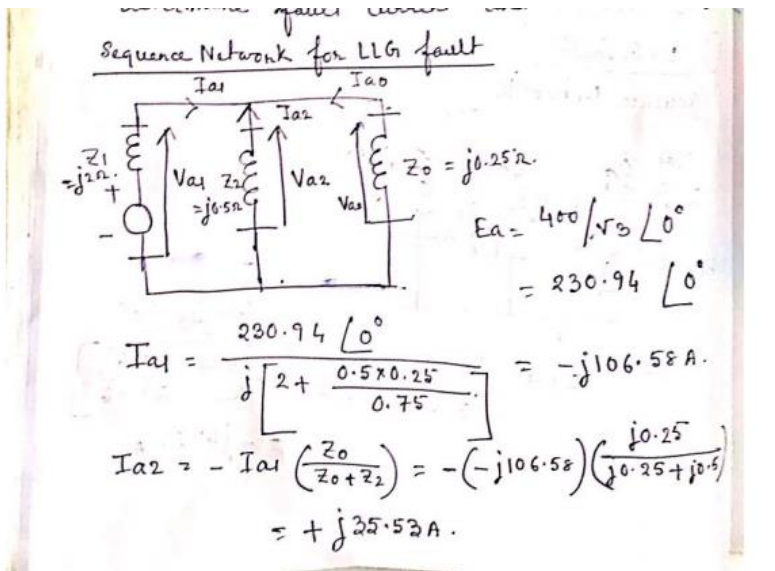 Sequence Network for LLG fault
Ia1 Ia0
Ia2
Z1
=j2Ω.
+
-
Va1
Z2
=j0.5Ω
Va2
Va0
Z0 = j0.25Ω.
Ea = 400/√3 ∠0°
= 230.94 ∠0°
Ia1 = 230.94 ∠0° / j[2 + 0.5×0.25 / 0.75] = -j106.58 A.
Ia2 = - Ia1 (Z0 / Z0+Z2) = -(-j106.58)(j0.25 / j0.25+j0.5)
= + j35.53A.